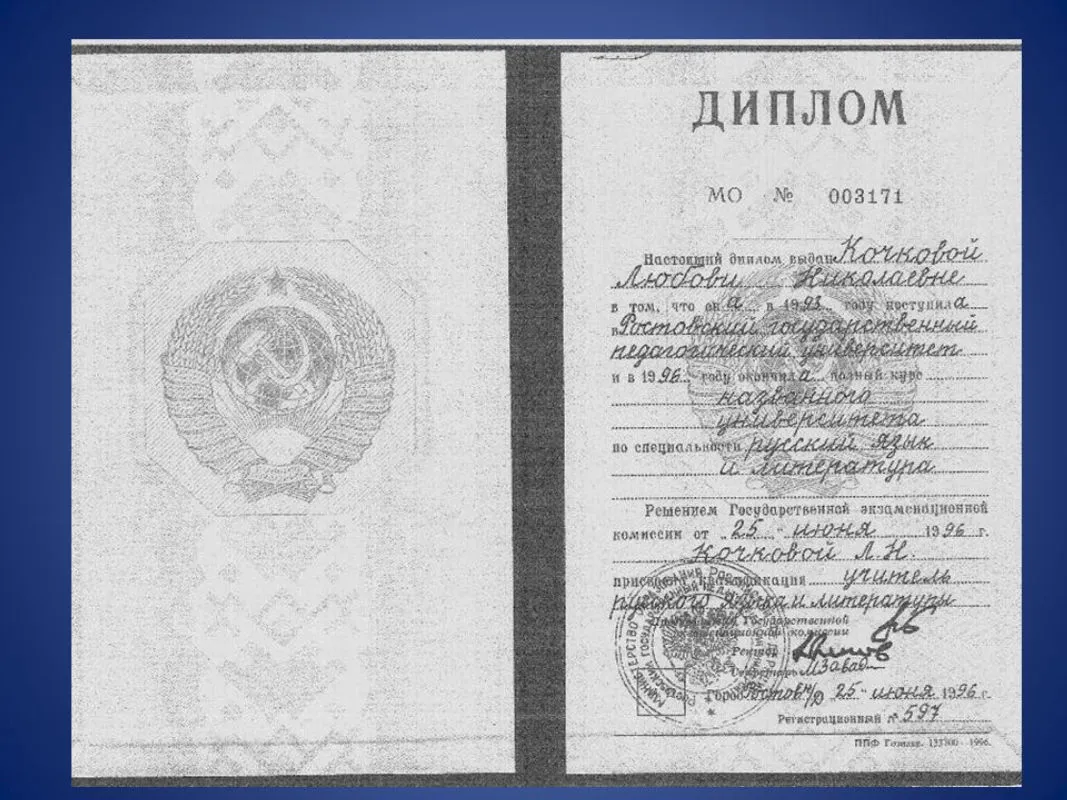 ДИПЛОМ
МО № 003171
Настоящий диплом выдан Кочковой
Любови Николаевне
в том, что она в 1993 году поступила
в Ростовский государственный
педагогический университет
и в 1996 году окончила полный курс
названного
университета
по специальности русский язык
и литература
Решением Государственной экзаменационной
комиссии от „25“ июня 1996 г.
Кочковой Л.Н.
присвоена квалификация учитель
русского языка и литературы
Государственной
экзаменационной комиссии
Ректор
Секретарь
Город Ростов н/Д „25“ июня 1996 г.
Регистрационный № 597
ППФ Гознака. 1996.